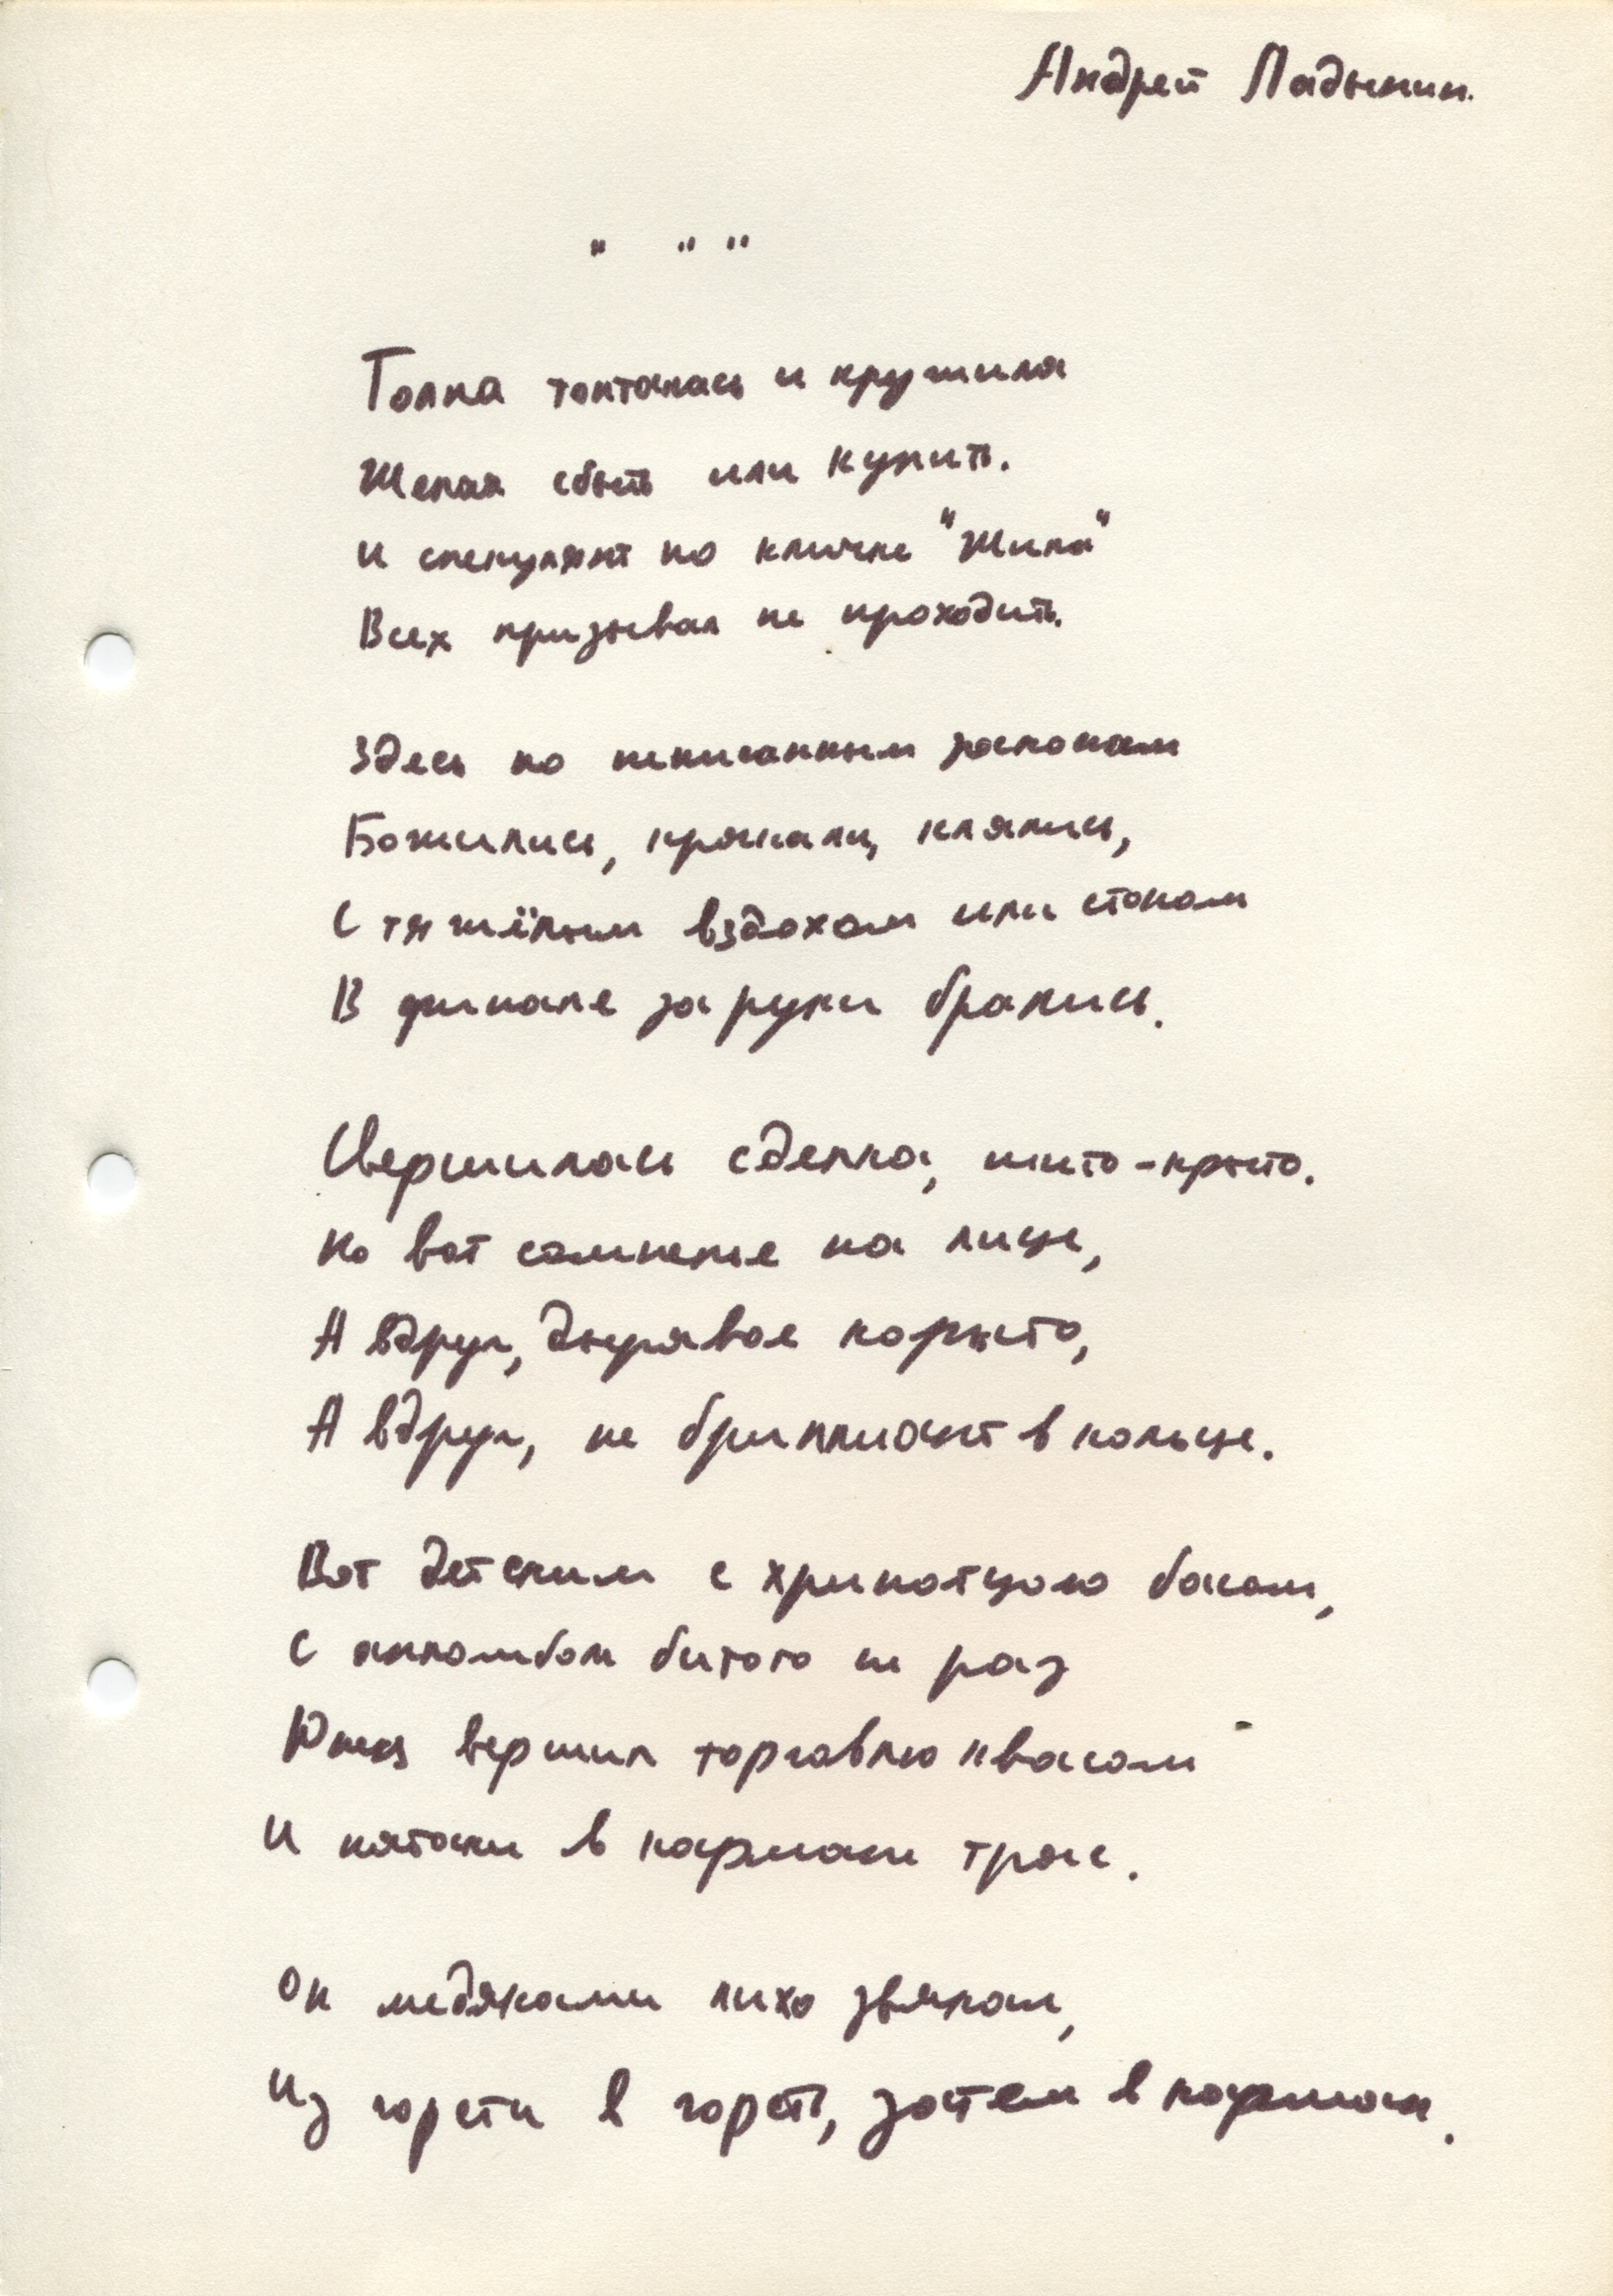 Андрей Ладыкин.
" " "
Толпа топталась и кружила
Желая сбыть или купить.
И спекулянт по кличке "Жила"
Всех призывал не проходить.
Здесь по неписанным законам
Божились, кряхали, клялись,
С тяжёлым вздохом или стоном
В финале за руки брались.
Свершилась сделка, шито-крыто.
Но вот сомненье на лице,
А вдруг, дырявое корыто,
А вдруг, не бриллиант в кольце.
Вот детским с хрипотцою басом,
С апломбом битого не раз
Юнец вершил торговлю квасом
И пятаки в кармане тряс.
Он медяками лихо звякал,
Из горсти в горсть, затем в карман.